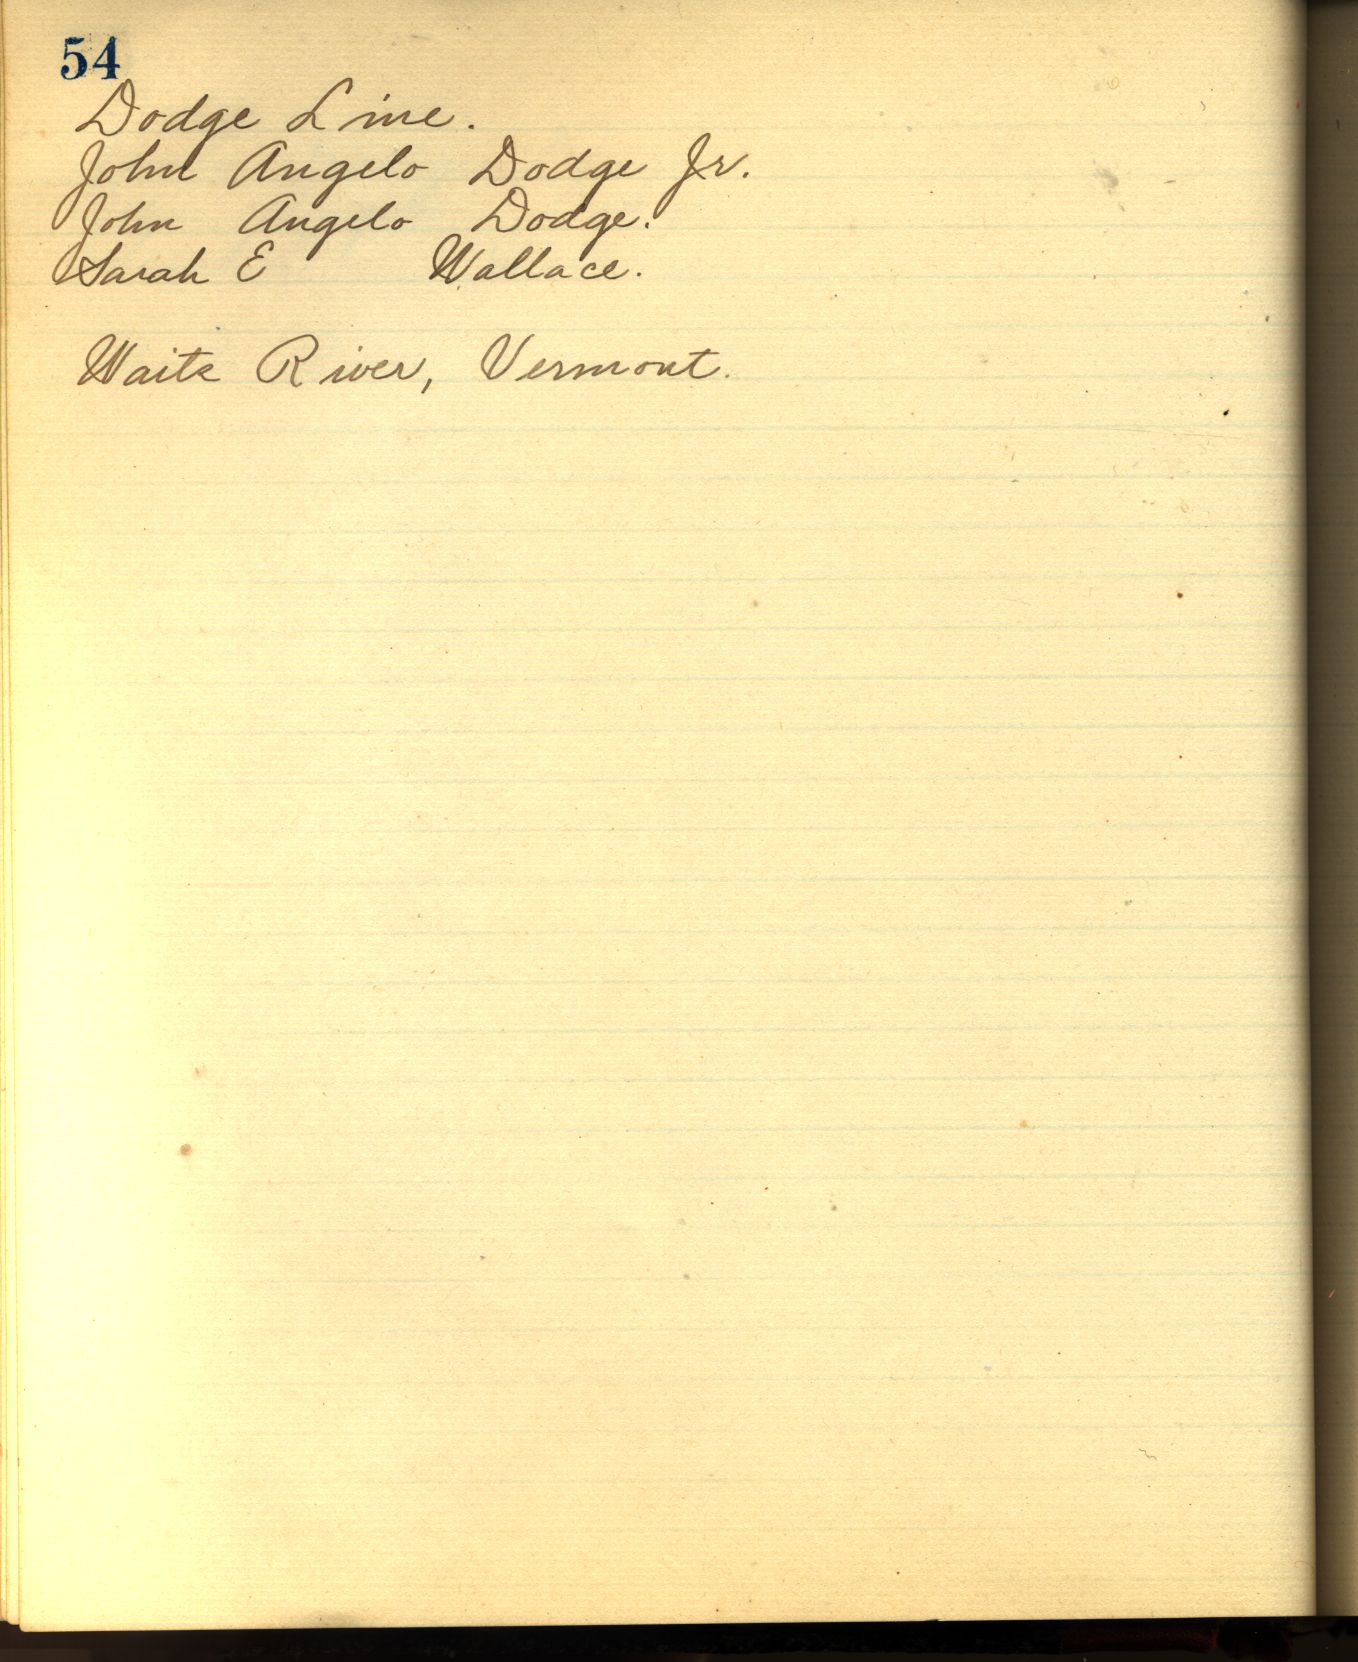 54
Dodge Line.
John Angelo Dodge Jr.
John Angelo Dodge.
Sarah E Wallace.
Waits River, Vermont.